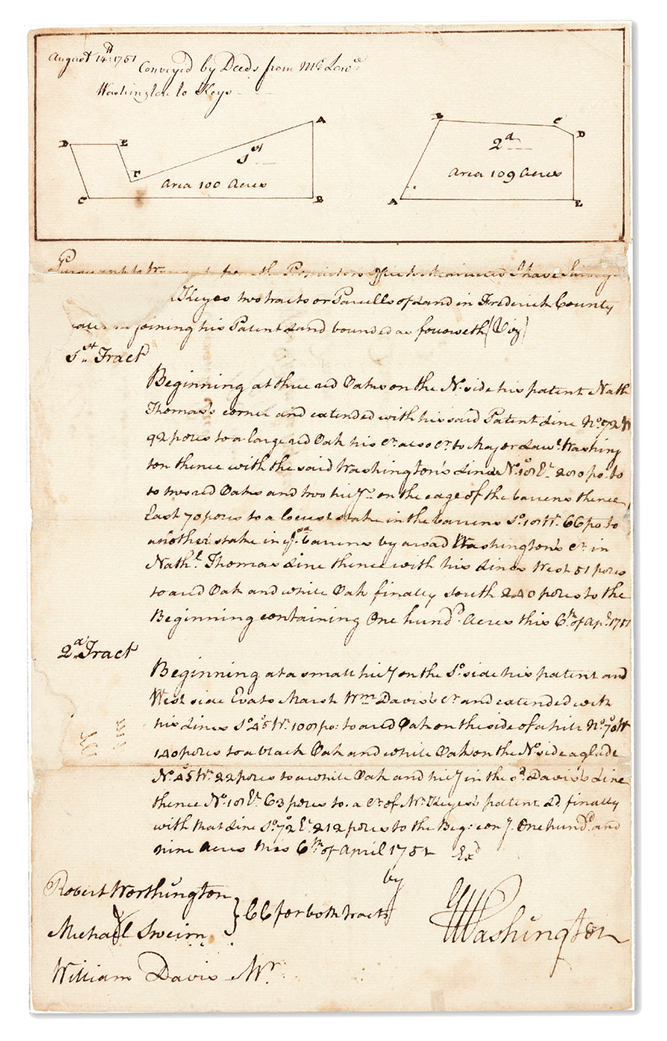 August 14th 1751
Conveyed by Deeds from Mr Lawe
Washington to Keys
A
D E
1st
F
Area 100 Acres
C B
B C
D
2d
Area 109 Acres
A E
Pursuant to Warrant from the Proprietors Office I have Survey
Keyes two tracts or Parcells of Land in Frederick County
joining his Patent Land bounded as followeth (Viz)
1st Tract
Beginning at three red Oaks on the No. side his patent Nath
Thomas's corner and extended with his said Patent Line No. 72 W
92 poles to a large red Oak his Cr. also Cr. to Major Lawe. Washing
ton thence with the said Washington's Line No. 18 Et. 280 po. to
to two red Oaks and two hicy. on the edge of the barrens thence
East 70 poles to a locust stake in the barrens So. 18 Et. 66 po to
another stake in ye. sd. barrens by a road Washington's Cr. in
Nathl. Thomas Line thence with his Line West 51 poles
to a red Oak and white Oak finally South 240 poles to the
Beginning containing One hund. Acres this 6th of Apl. 1751
2d Tract
Beginning at a small hicy on the So. side his patent and
West side Evats Marsh Wm. Davis's Cr. and extended with
his Lines So. 45 Wt. 100 po: to a red Oak on the side of a hill No. 70 W
140 poles to a black Oak and white Oak on the No. side a glade
No. 45 Wt. 22 poles to a white Oak and hicy in the sd. Davis's Line
thence No. 18 Et. 63 poles to a Cr. of Mr. Keyes's patent Ld finally
with that Line So. 72 Et. 212 poles to the Beg: con g. One hund. and
nine Acres this 6th of April 1751 Exd
by
Robert Worthington
} CC for both tracts
Michael
GWashington
William Davis Mr.